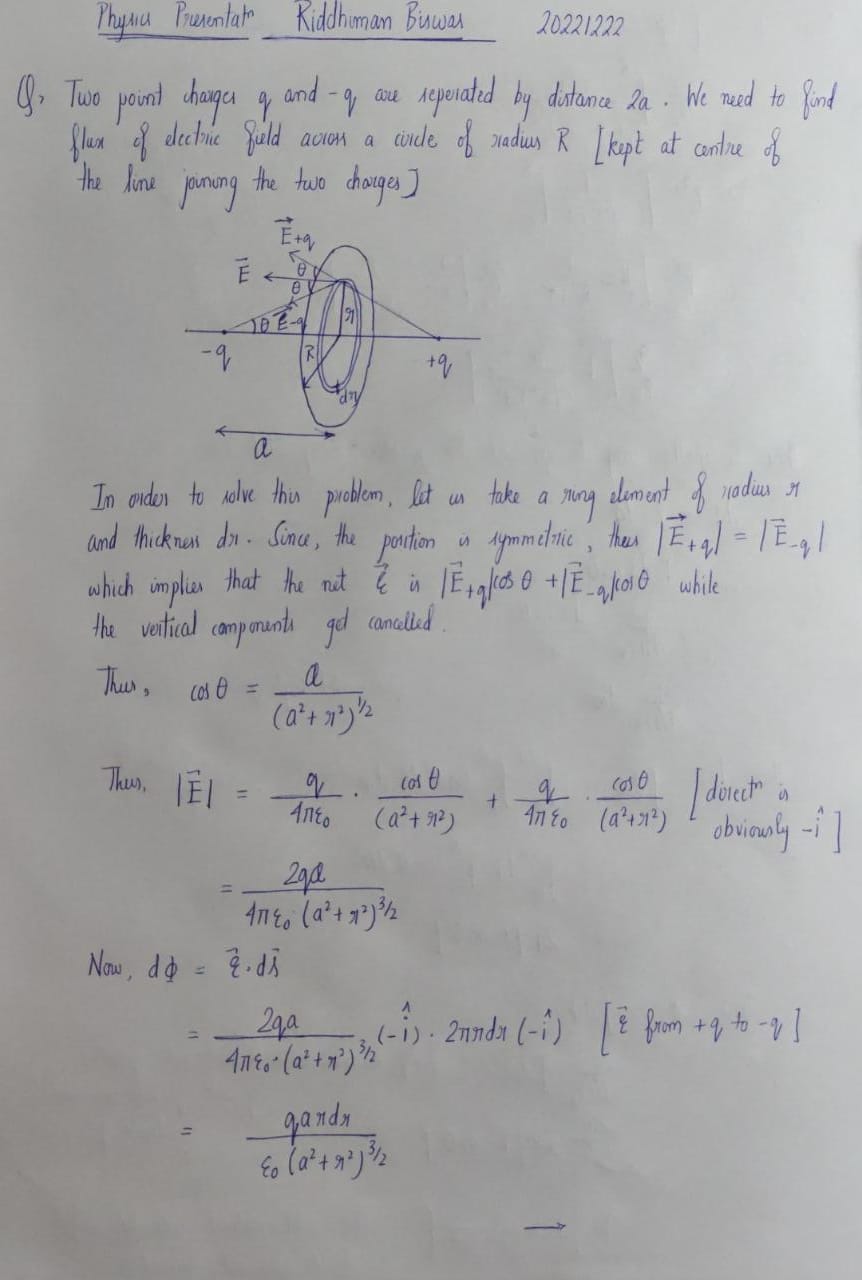 Physics Presentatn Riddhiman Biswas 20221222
Q, Two point charges q and -q are seperated by distance 2a. We need to find
flux of electric field across a circle of radius R [kept at centre of
the line joining the two charges]
E⃗+q
E⃗ θ
θ
θ E⃗-q r
-q R +q
dr
a
In order to solve this problem, let us take a ring element of radius r
and thickness dr. Since, the position is symmetric, thus |E⃗+q| = |E⃗-q|
which implies that the net E⃗ is |E⃗+q|cos θ + |E⃗-q|cos θ while
the vertical components get cancelled.
Thus, cos θ = a / (a² + r²)^1/2
Thus, |E⃗| = q / 4πε₀ · cos θ / (a² + r²) + q / 4πε₀ · cos θ / (a² + r²) [directn is
obviously -î]
= 2qa / 4πε₀ (a² + r²)^3/2
Now, dϕ = E⃗ · ds⃗
= 2qa / 4πε₀ · (a² + r²)^3/2 (-î) · 2πrdr (-î) [E⃗ from +q to -q]
= qardr / ε₀ (a² + r²)^3/2
→